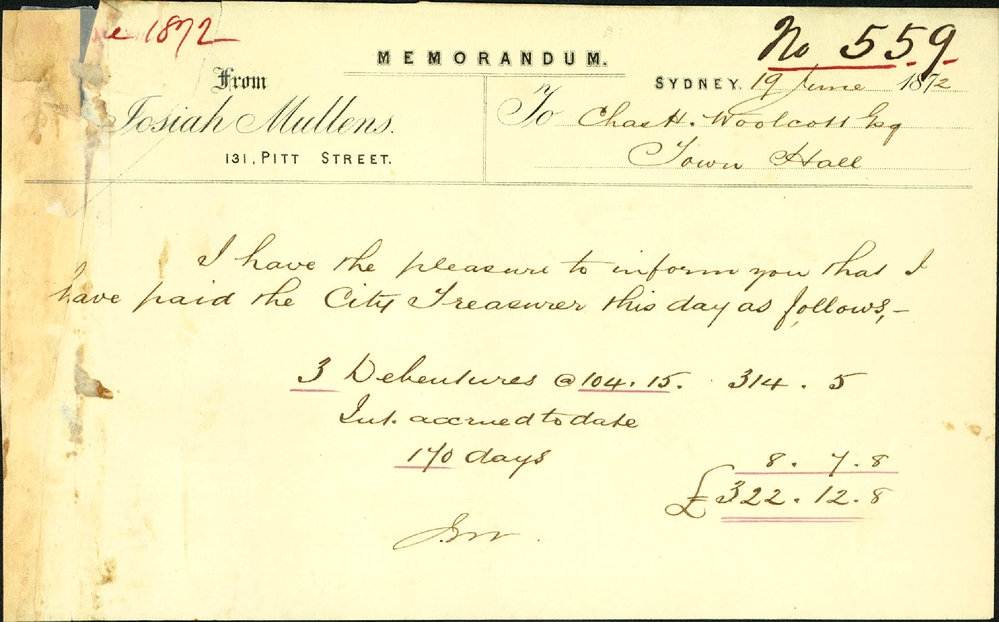 e 1872
No 559
MEMORANDUM.
From
Josiah Mullens.
131, PITT STREET.
SYDNEY, 19 June 1872
To Chas H. Woolcott Esq
Town Hall
I have the pleasure to inform you that I
have paid the City Treasurer this day as follows,—
3 Debentures @ 104.15. 314. 5
Int. accrued to date
170 days 8. 7. 8
£322. 12. 8